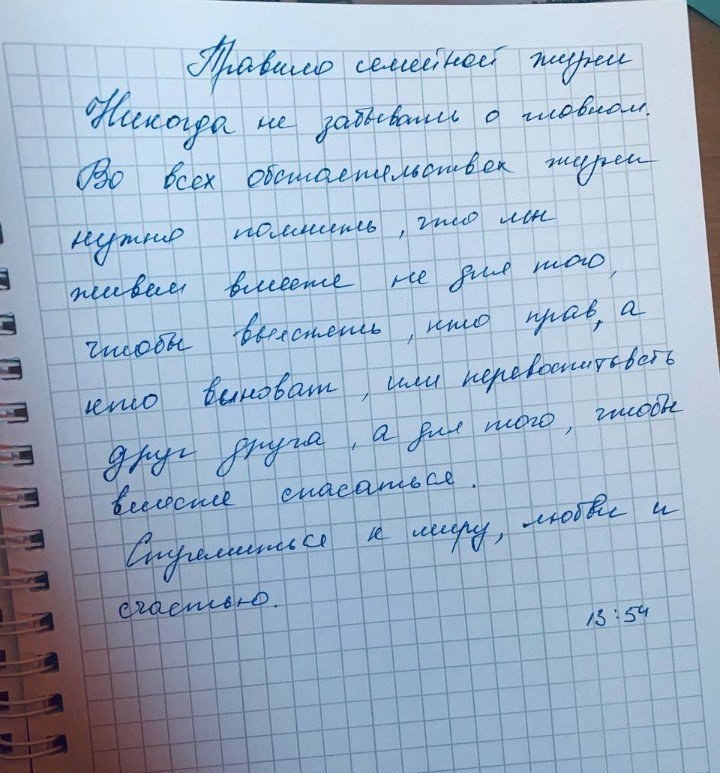 Правило семейной жизни
Никогда не забывать о главном.
Во всех обстоятельствах жизни
нужно помнить, что мы
живем вместе не для того,
чтобы выяснять, кто прав, а
кто выноват, или перевоспитывать
друг друга, а для того, чтобы
вместе спасаться.
Стремиться к миру, любви и
счастью.
13:54